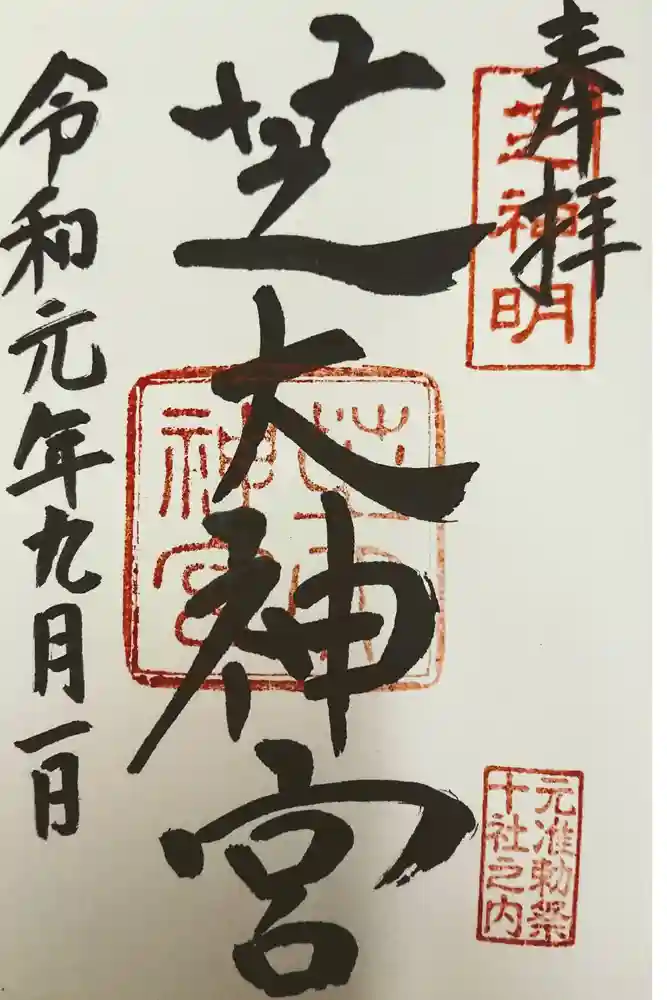 奉拝
芝神明
芝大神宮
芝大
神宮
元准勅祭
十社之内
令和元年九月一日